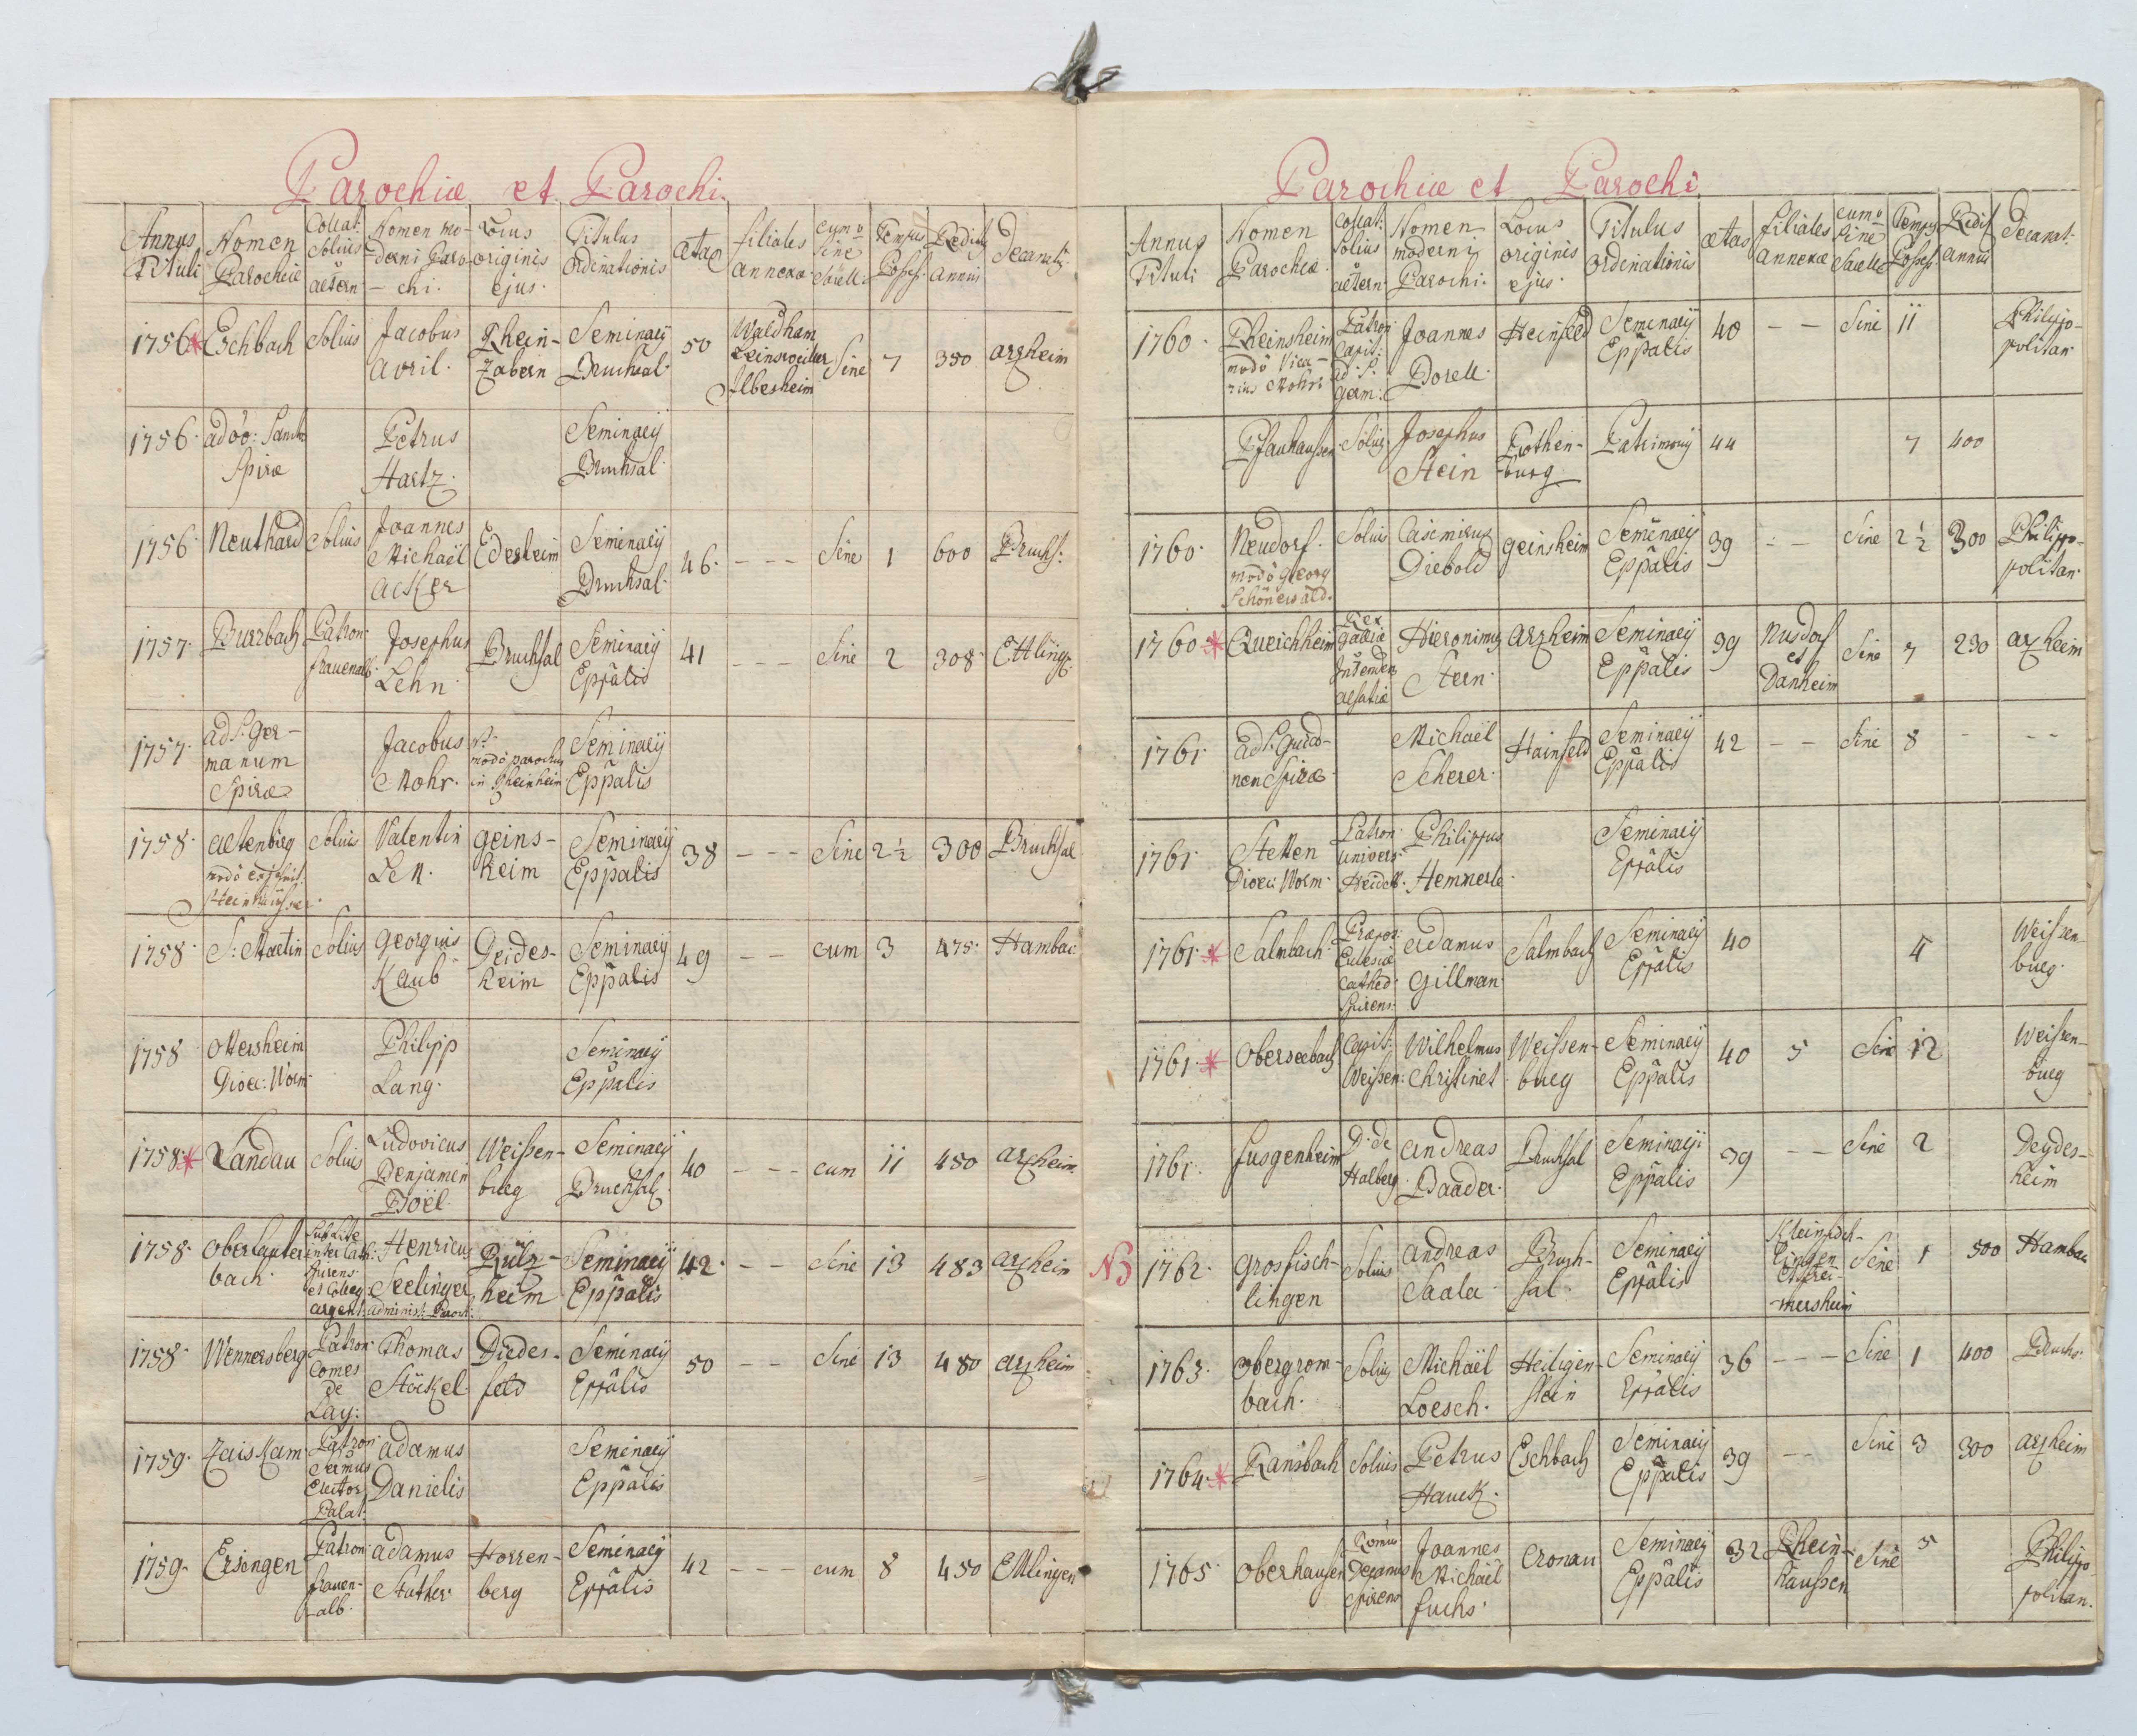 Parochiæ et Parochi.
Annus Tituli | Nomen Parochiæ | Collat: Solius aetern | Nomen moderni Parochi. | Locus originis ejus. | Titulus Ordinationis | ætas | filiales annexæ | cum v sine Sacell: | Tempus Posses: | Redit9 annui | Decanat9
1756 * | Eschbach | Solius | Jacobus Avril. | Rhein-Zabern | Seminarij Bruchsal. | 50 | Waldham Leinsweiller Ilbesheim | Sine | 7 | 350 | arzheim
1756. | ad oo: Sanct. Spiræ | | Petrus Hartz. | | Seminarij Bruchsal.
1756. | Neuthard | Solius | Joannes Michaël Acker | Edesheim | Seminarij Bruchsal. | 46. | - - - | Sine | 1 | 600 | Bruchs:
1757. | Burbach | Patron: frauenalb | Josephus Lehn. | Bruchsal | Seminarij Eppalis | 41 | - - - | Sine | 2 | 308. | Ettling:
1757. | ad S: Germanum Spiræ | | Jacobus Mohr. | modò parochus in Rheinsheim | Seminarij Eppalis
1758. | Altenbürg modò | Solius | Valentin Lell. | geinsheim | Seminarij Eppalis | 38 | - - - | Sine | 2½ | 300 | Bruchsal
1758. | S: Martin | Solius | georgius Kaub | Deidesheim | Seminarij Eppalis | 49 | - - | cum | 3 | 475. | Hambac:
1758 | Ottersheim Dioec: Worm. | | Philipp Lang. | | Seminarij Eppalis
1758. * | Landau | Solius | Ludovicus Benjamin Noël. | Weissenburg | Seminarij Bruchsal. | 40 | - - - | cum | 11 | 450 | arzheim
1758. | Oberlauterbach. | Sub Lite inter Cath: Spirens: et Colleg argent. | Henricus Seelinger, administ: Paroch: | Rülzheim | Seminarij Eppalis | 42. | - - | Sine | 13 | 483 | arzheim
1758. | Wennersberg | Patron: Comes de Lay: | Thomas Stöckel. | Diedesfeld | Seminarij Eppalis | 50 | - - | Sine | 13 | 480 | arzheim
1759. | Zaiskam. | Patron: Sermus Elector Palat: | adamus Danielis | | Seminarij Eppalis
1759. | Ersingen | Patron: frauenalb. | adamus Stather. | Horrenberg | Seminarij Eppalis | 42 | - - - | cum | 8 | 450 | Ettlingen
Parochiæ et Parochi
Annus Tituli | Nomen Parochiæ. | Collat: Solius aetern. | Nomen moderni Parochi. | Locus originis ejus. | Titulus Ordinationis | ætas | filiales annexæ | cum v sine Sacell: | Tempus Posses: | Redit9 annui | Decanat:
1760. | Rheinsheim modò Vicarius Mohr. | Patron: Capit: ad S. Germ: | Joannes Borell. | Heinfeld | Seminarij Eppalis | 40 | - - | Sine | 11 | | Philippopolitan.
| Pfauhaussen | Solius | Josephus Stein | Rothenburg | Patrimonij | 44 | | | 7 | 400
1760. | Neudorf. modò georg Schönewald. | Solius | Casimirus Diebold | geinsheim | Seminarij Eppalis | 39 | - - | Sine | 2½ | 300 | Philippopolitan.
1760. * | Queichheim | Rex galliæ Intendens alsatiæ | Hieronimus Stern. | arzheim | Seminarij Eppalis | 39 | Nusdorf et Danheim | Sine | 7 | 230 | arzheim
1761. | ad S: guidonem Spiræ. | | Michaël Scherer. | Hainfeld | Seminarij Eppalis | 42 | - - | Sine | 8 | - | - -
1761. | Stetten Dioec: Worm. | Patron: univers: Heidelb. | Philippus Hemmerle. | | Seminarij Eppalis
1761. * | Salmbach. | Præpos: Eclesiæ Cathed: Spirens: | adamus gillman. | Salmbach | Seminarij Eppalis | 40 | | | 4 | | Weissenburg.
1761. * | Oberseebach | Capit: Weissen: | Wilhelmus Christinet. | Weissenburg | Seminarij Eppalis | 40 | 5 | Sine | 12 | | Weissenburg
1761. | fusgenheim | D: de Halberg. | andreas Baader. | Bruchsal | Seminarij Eppalis | 39 | - - | Sine | 2 | | Deydesheim
NB 1762. | grosfischlingen | Solius | andreas Saala | Bruchsal. | Seminarij Eppalis | | Kleinfischlingen et freimersheim | Sine | 1 | 500 | Hambac
1763. | Obergrombach. | Solius | Michaël Loesch. | Heiligenstein | Seminarij Eppalis | 36 | - - - | Sine | 1 | 400 | Bruchs:
1764. * | Ransbach | Solius | Petrus Hauck. | Eschbach | Seminarij Eppalis | 39 | - - | Sine | 3 | 300 | arzheim
1765. | Oberhausen | Decanus Spirens | Joannes Michaël fuchs. | Cronau | Seminarij Eppalis | 32 | Rheinhaussen | Sine | 5 | | Philippopolitan.